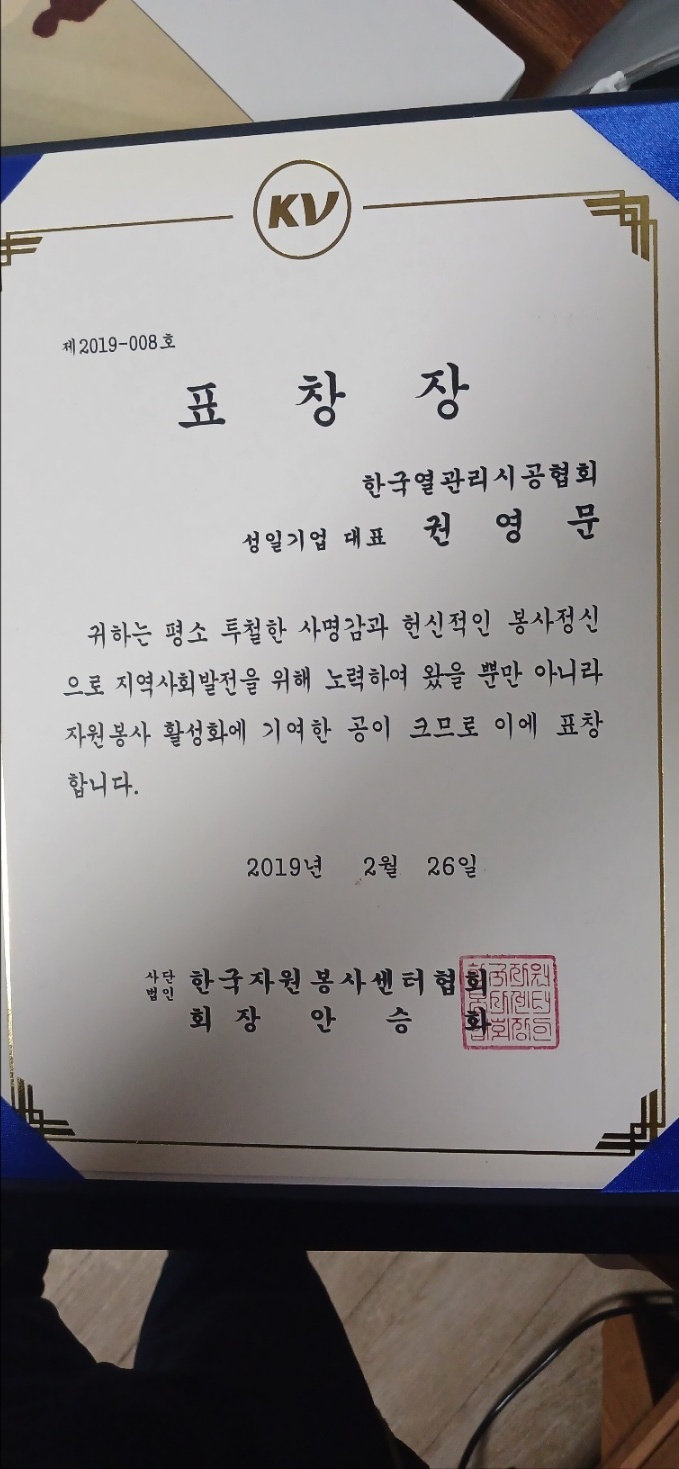 KV
제2019-008호
표 창 장
한국열관리시공협회
성일기업 대표 권 영 문
귀하는 평소 투철한 사명감과 헌신적인 봉사정신
으로 지역사회발전을 위해 노력하여 왔을 뿐만 아니라
자원봉사 활성화에 기여한 공이 크므로 이에 표창
합니다.
2019년 2월 26일
사단법인 한국자원봉사센터협회
회 장 안 승 화